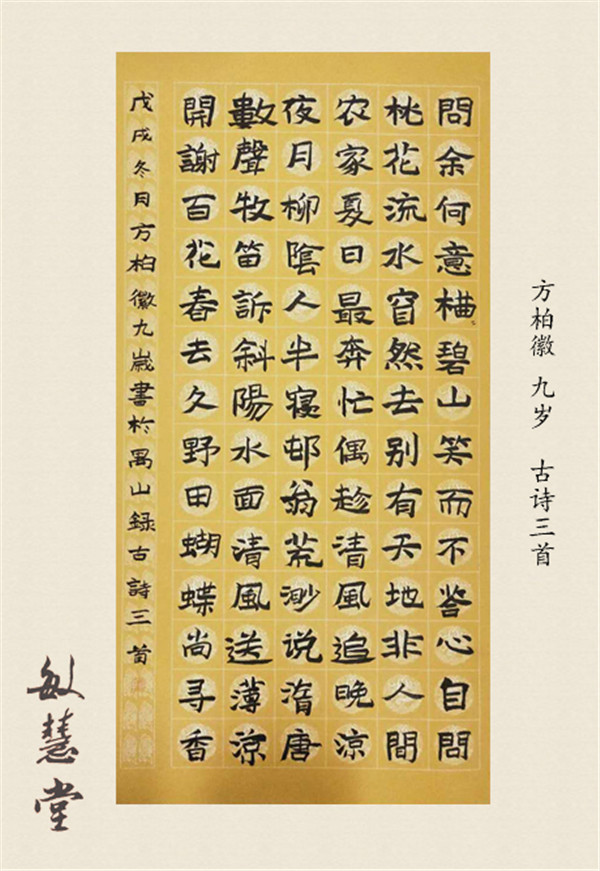 問余何意栖碧山笑而不答心自問
桃花流水窅然去别有天地非人間
农家夏日最奔忙偶趁清風追晚涼
夜月柳陰人半寝邨翁荒渺说隋唐
數聲牧笛訴斜陽水面清風送薄涼
開謝百花春去久野田蝴蝶尚寻香
戊戌冬月方柏徽九歲書於禺山録古詩三首
方柏徽 九岁 古诗三首
敏慧堂